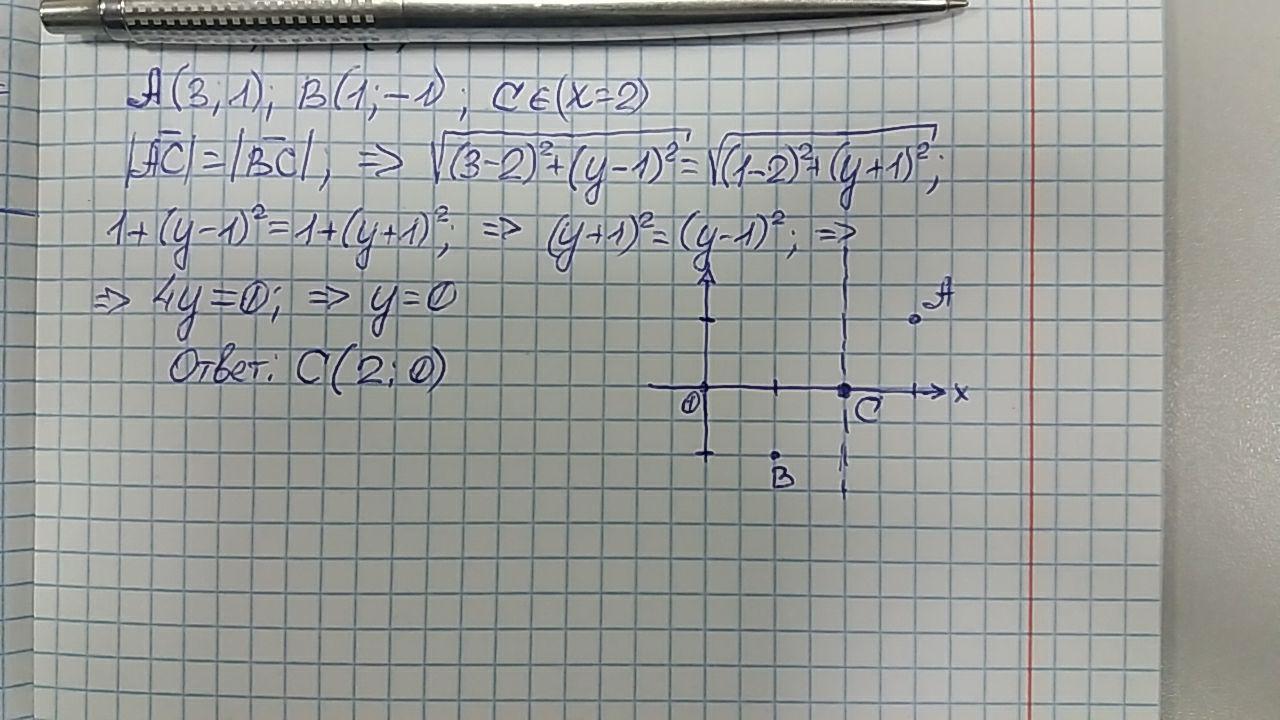 A(3;1); B(1;-1); C∈(x=2)
|A̅C̅|=|B̅C̅|; => √((3-2)²+(y-1)²)=√((1-2)²+(y+1)²);
1+(y-1)²=1+(y+1)²; => (y+1)²=(y-1)²; =>
=> 4y=0; => y=0
Ответ: C(2;0)
A
0
C
x
B